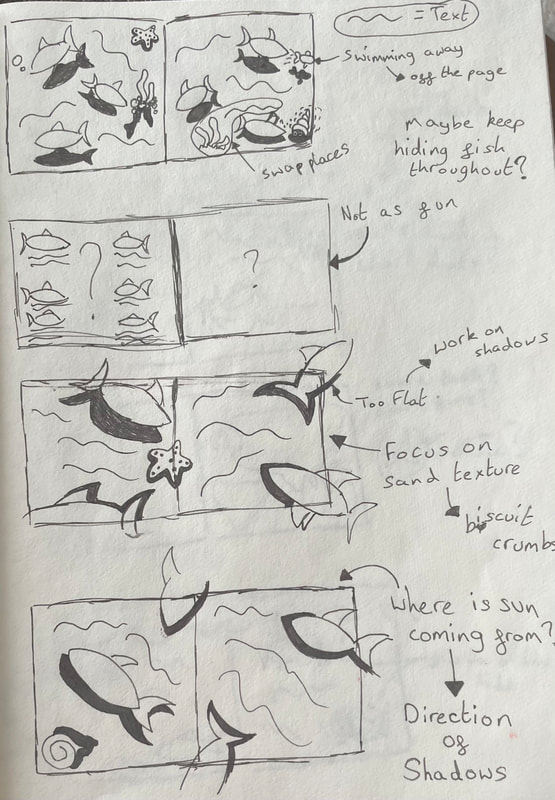 = Text
Swimming away
off the page
swap places
Maybe keep
hiding fish
throughout?
Not as fun
?
?
Work on
shadows
Too Flat
Focus on
sand texture
biscuit
crumbs
Where is sun
coming from?
Direction
of
Shadows